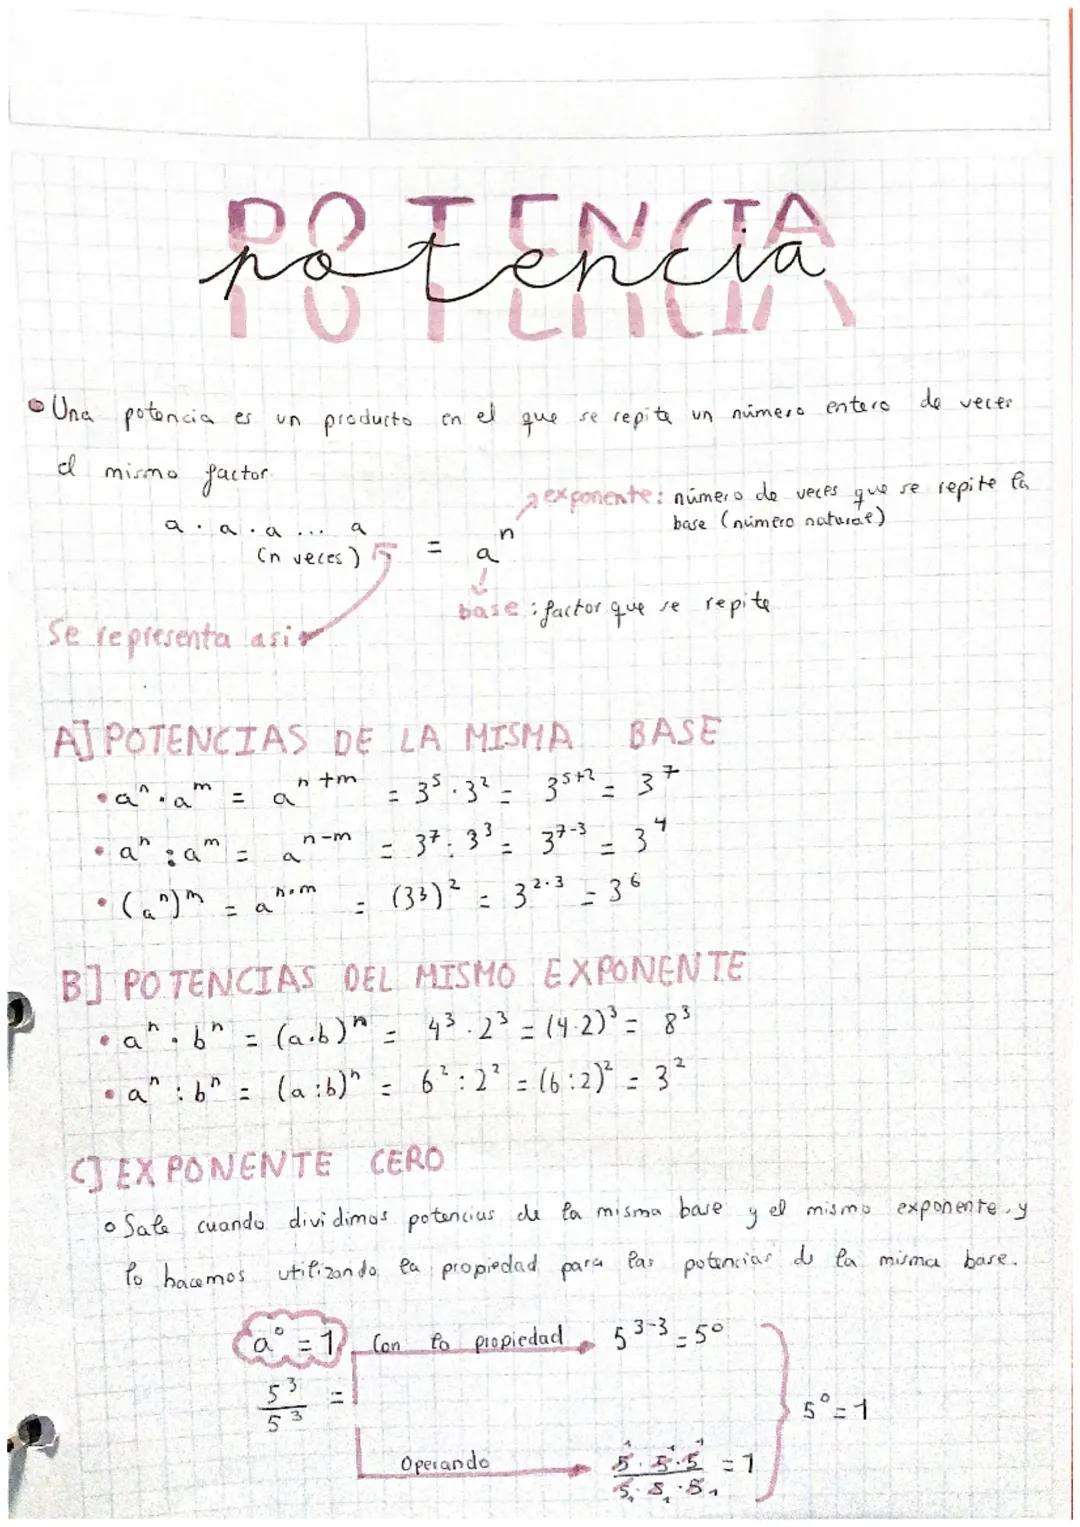 POTENCIA
potencia
• Una potencia es un producto en el que se repite un número entero de veces
el mismo factor.
exponente: número de veces que se repite la
base (número natural)
a · a · a ... a
(n veces)
= aⁿ
base: factor que se repite
Se representa así
A] POTENCIAS DE LA MISMA BASE
• aⁿ · aᵐ = aⁿ⁺ᵐ = 3⁵ · 3² = 3⁵⁺² = 3⁷
• aⁿ : aᵐ = aⁿ⁻ᵐ = 3⁷ : 3³ = 3⁷⁻³ = 3⁴
• (aⁿ)ᵐ = aⁿ·ᵐ = (3³)² = 3²·³ = 3⁶
B] POTENCIAS DEL MISMO EXPONENTE
• aⁿ · bⁿ = (a·b)ⁿ = 4³ · 2³ = (4·2)³ = 8³
• aⁿ : bⁿ = (a:b)ⁿ = 6² : 2² = (6:2)² = 3²
C] EXPONENTE CERO
• Sale cuando dividimos potencias de la misma base y el mismo exponente, y
lo hacemos utilizando la propiedad para las potencias de la misma base.
a⁰ = 1 Con la propiedad 5³⁻³ = 5⁰
5³/5³ =
5⁰ = 1
Operando 5·5·5/5·5·5 = 1